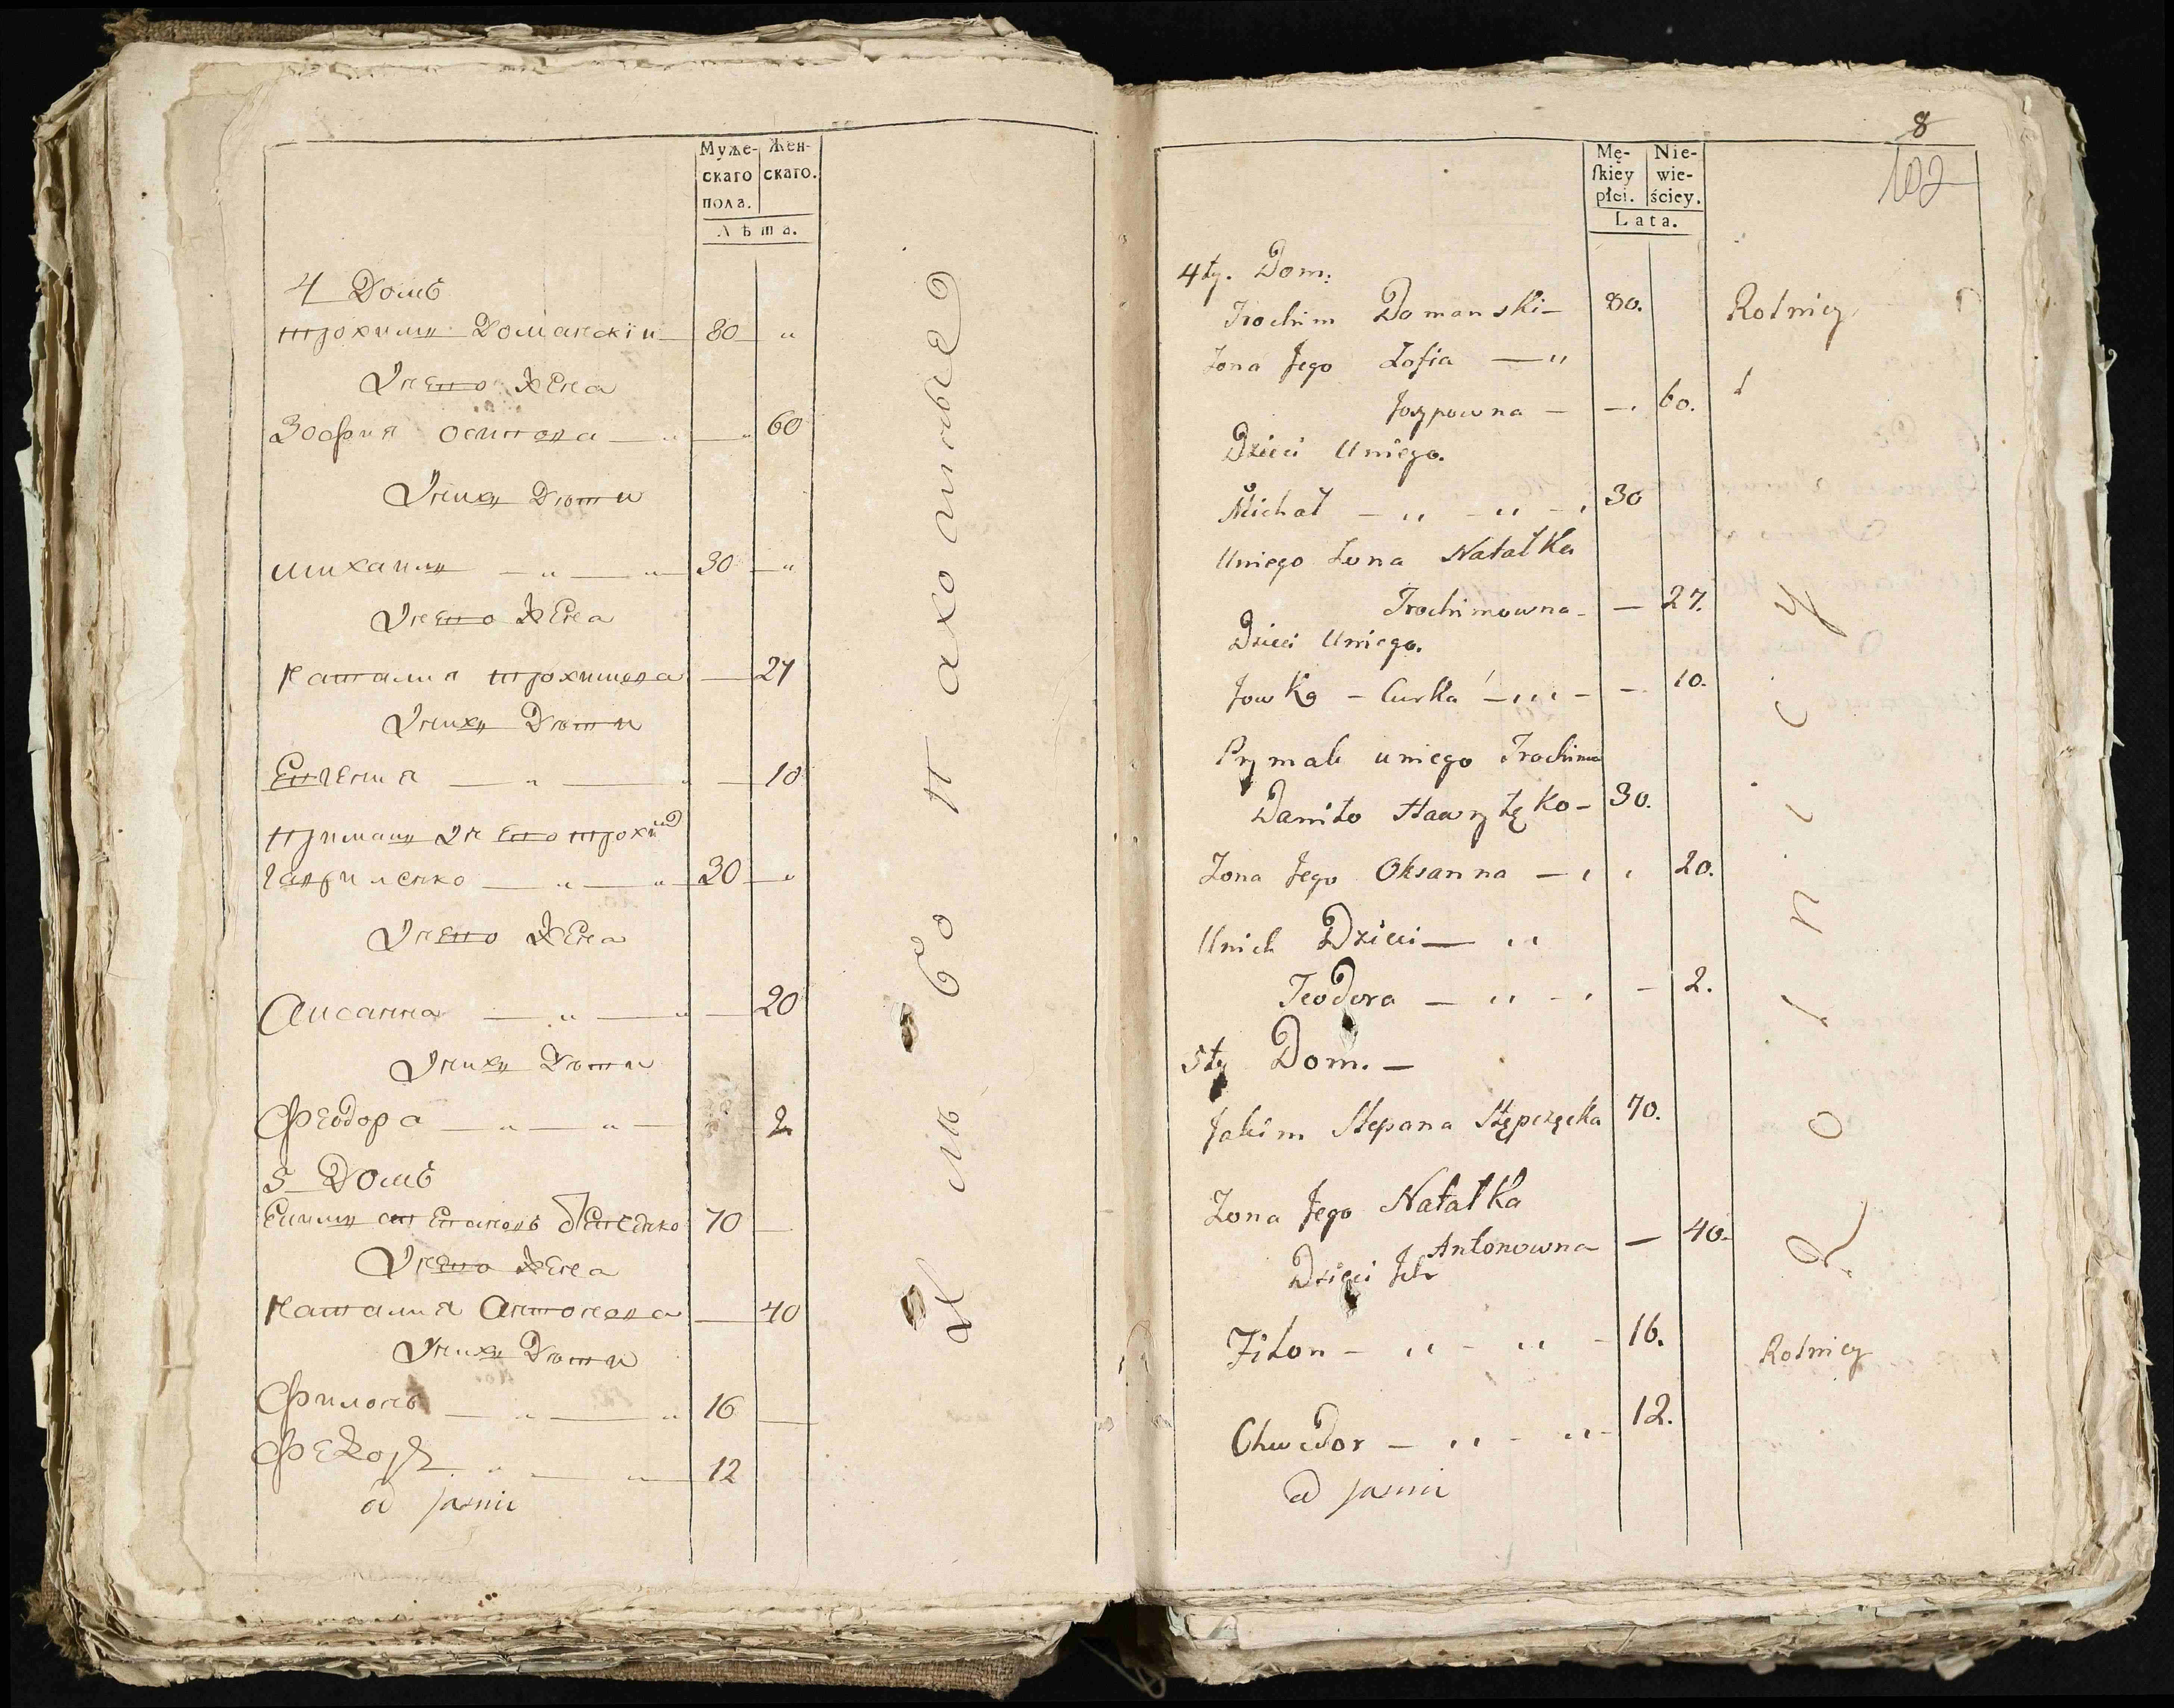 Муже-
скаго
пола.
Жен-
скаго.
Лѣта.
4 Домъ
трохимъ Доманскіи 80 "
Унево Жена
Зофия осипова — " — " 60
Унихъ Дѣти
михаилъ — " — " 30 — "
Унево Жена
Наталия трохимова — 27
Унихъ Дѣти
Евгения — " — " — 10
примакъ Унево трохи
гавриленко — " — " 30 — "
Унево Жена
Аксанна — " — " — 20
Унихъ Дѣти
Феодора — " — " — 2
5 Домъ
Екимъ степановъ 70 —
Унево Жена
Наталия Антонова — 40
Унихъ Дѣти
Филонъ — " — " 16 —
Федоръ " — " 12
Хлѣбопахотные
8
102
Mę-
ſkiey
płci.
Nie-
wie-
ściey.
Lata.
4ty. Dom:
Trochim Domanski — 80. Rolnicy
Zona Jego Zofia — "
Jozypowna — — 60.
Dzieci Uniego.
Michał — " — " — 30
Uniego Zona Natałka
Trochimowna — — 27.
Dzieci Uniego.
Jowka — Curka — " — — 10.
Prymak uniego Trochima
Daniło Hawryłęko — 30.
Zona Jego Oksanna — 20.
Unich Dzieci — "
Teodora — " — — 2.
5ty Dom. —
Jakim Stepana 70.
Zona Jego Natałka
Antonowna — 40.
Dzieci Ich
Filon — " — " — 16. Rolnicy
Chwedor — " — " — 12.
Rolnicy